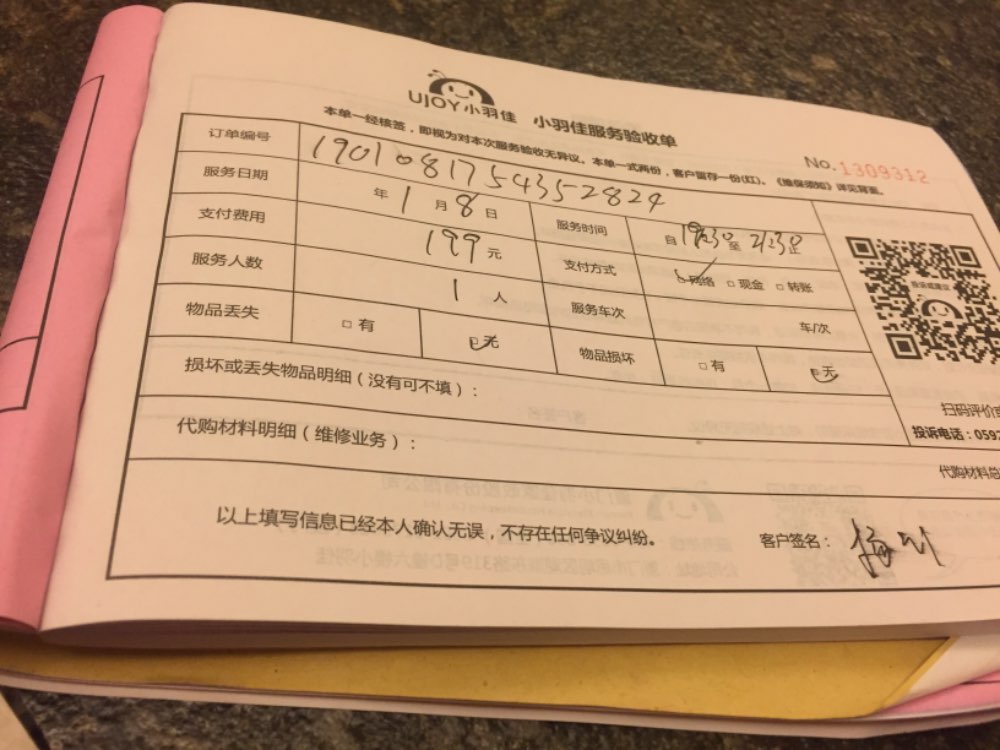 UJOY小羽佳 小羽佳服务验收单
本单一经核签，即视为对本次服务验收无异议。本单一式两份，客户留存一份(红)。《维保须知》详见背面。
No.1309312
订单编号 190108175435 2824
服务日期 年 1 月 8 日 服务时间 自 19:30 至 21:30 止
支付费用 199 元 支付方式 ☑网络 □现金 □转账
服务人数 1 人 服务车次 车/次
物品丢失 □有 ☑无 物品损坏 □有 ☑无
损坏或丢失物品明细（没有可不填）：
扫码评价
投诉电话：0592
代购材料明细（维修业务）：
代购材料总
以上填写信息已经本人确认无误，不存在任何争议纠纷。 客户签名：